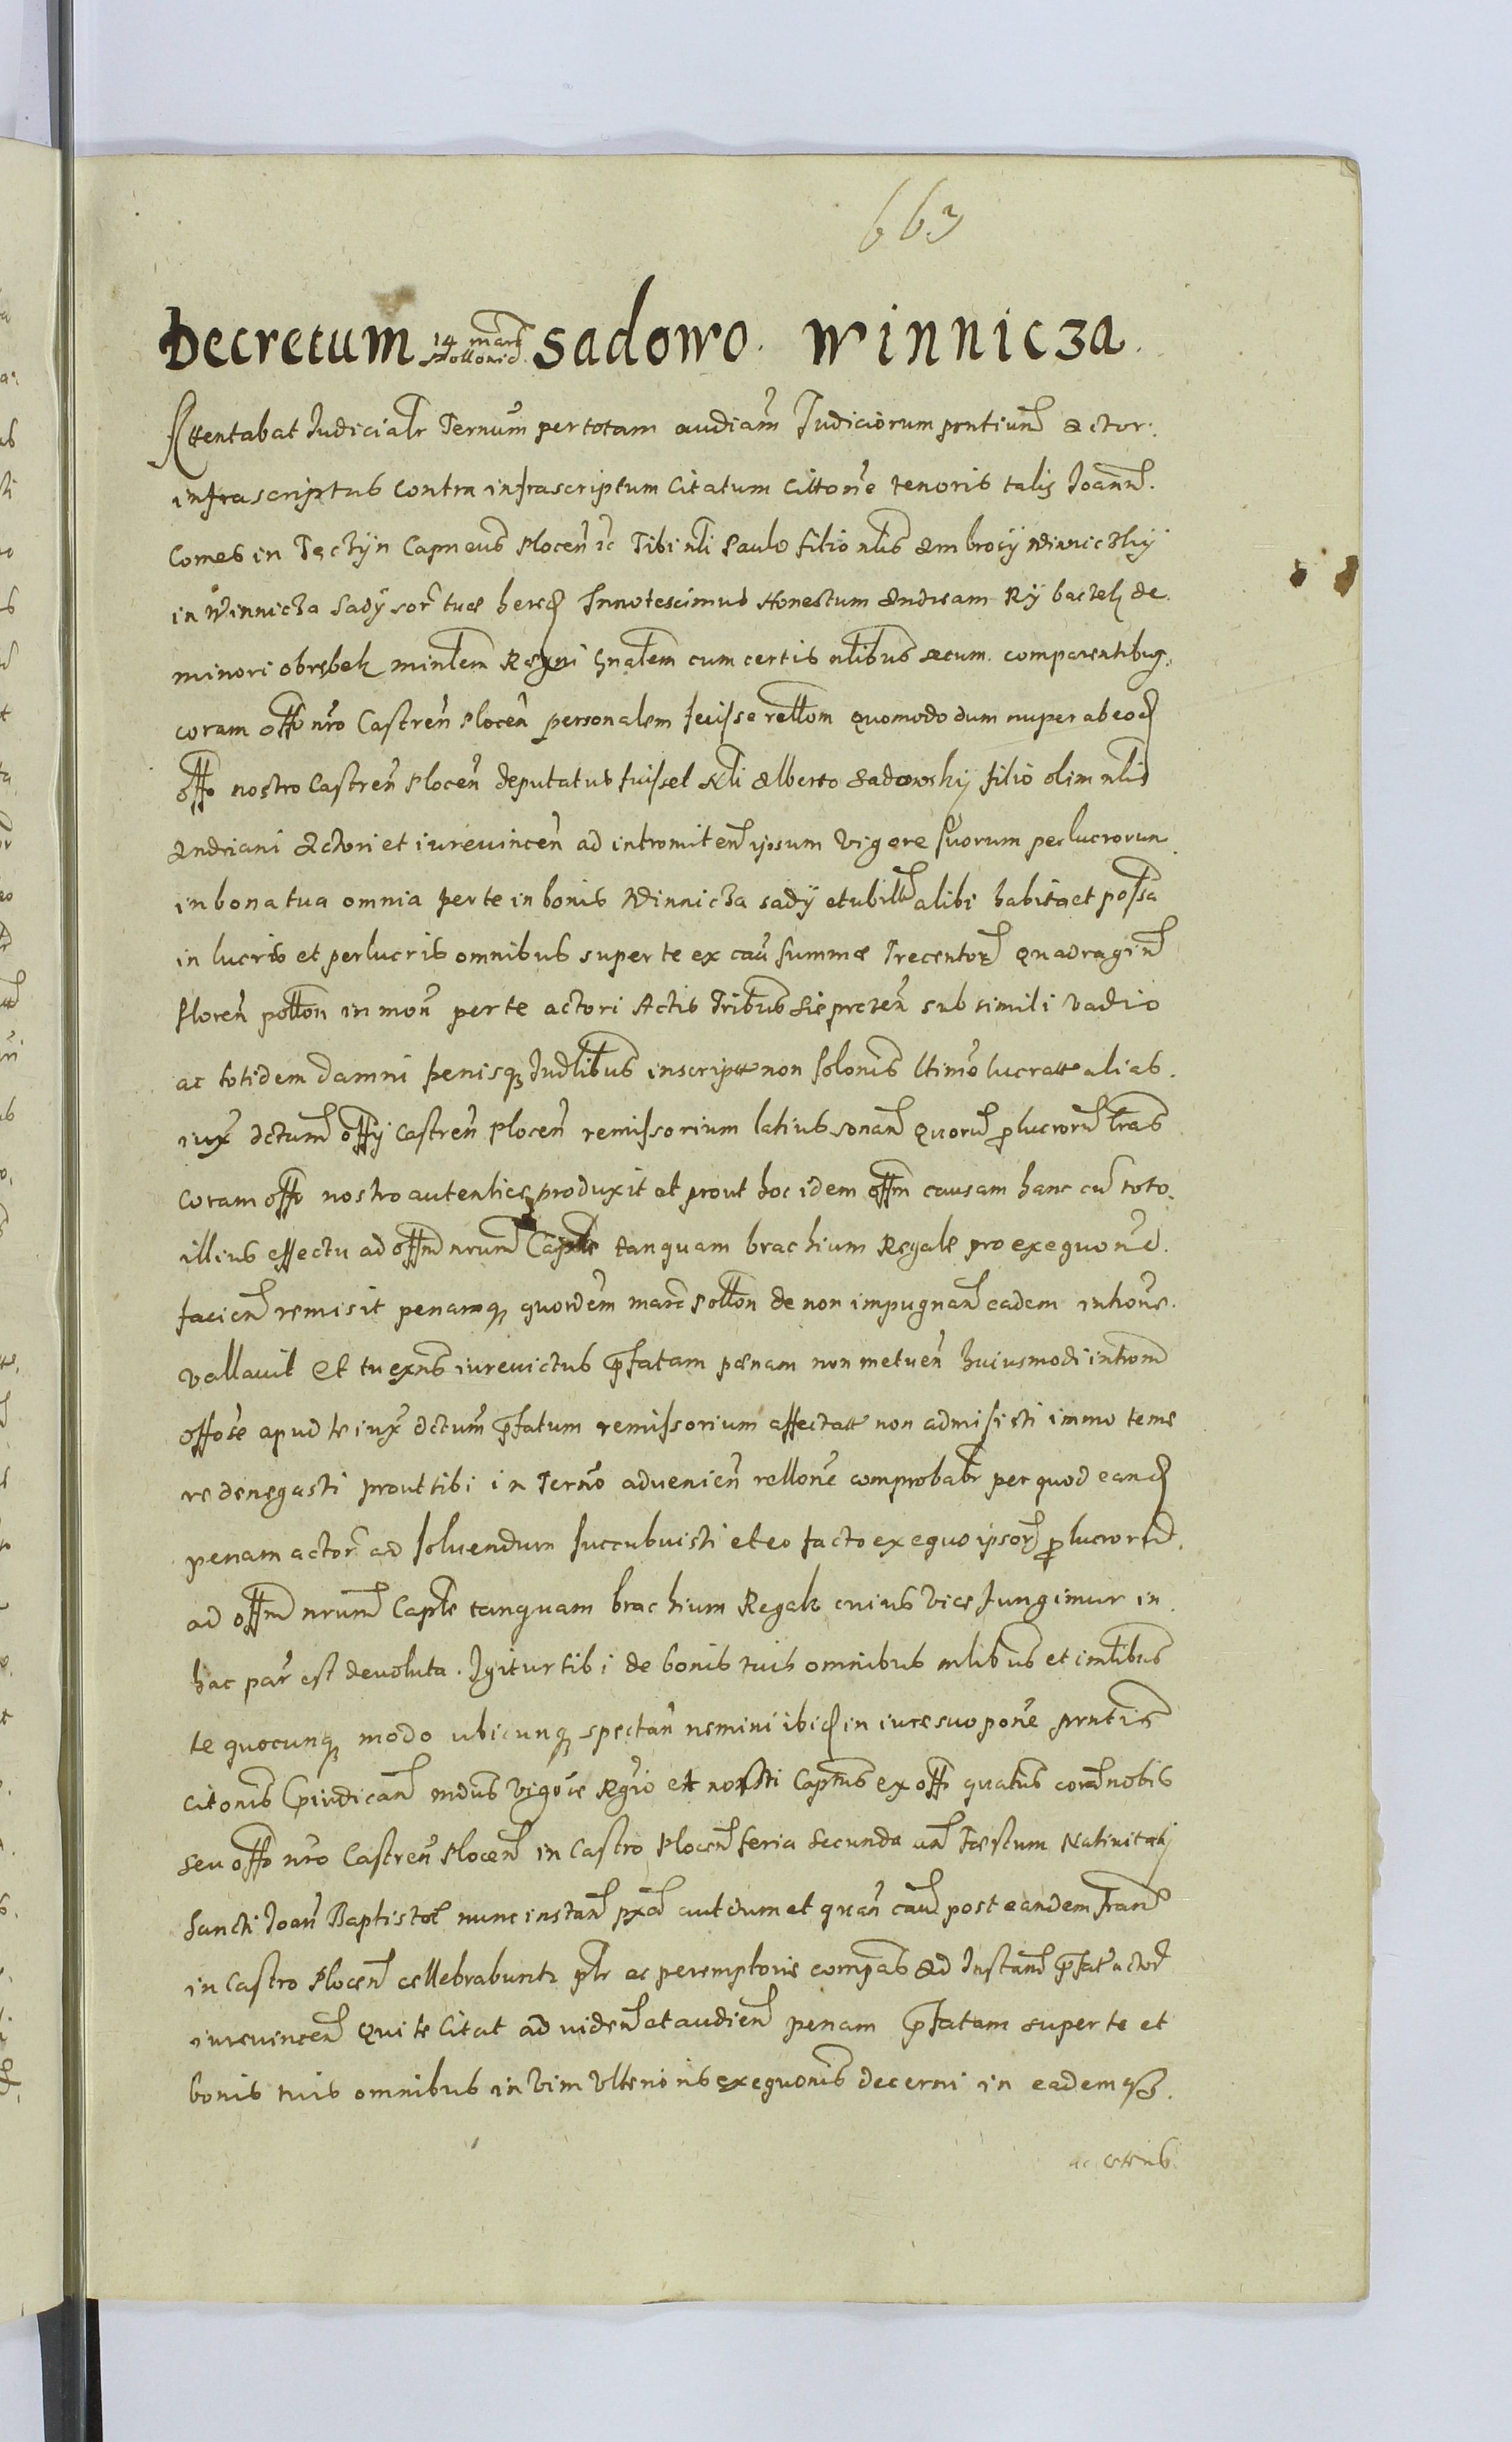 663
Decretum 14 marc Pollonic. Sadowo. Winnicza.
Attentabat Judicialr Ternum per totam audiam Judiciorum prntium actor.
infrascriptus contra infrascriptum Citatum Cittone tenoris talis Joann.
Comes in Tęczyn Capneus Plocen rc Tibi nli Paulo filio nlis Ambrosy Winniczky
in Winnicza Sady sor tuae hered Innotescimus Honestum Andream Rybaczek de
minori obrębek minlem Regni Gnalem cum certis nlibus secum comparentibus.
coram offo nro Castren Plocen personalem fecisse rellom quomodo dum nuper ab eod
offo nostro Castren Plocen deputatus fuisset Nli Alberto Sadowsky filio olim nlis
Andriani Actori et iurevincen ad intromiten ipsum vigore suorum perlucrorum
in bona tua omnia per te in bonis Winnicza sady et ubillt alibi habita et possa
in lucris et perlucris omnibus super te ex cau summae Trecentor Quadragin
floren pollon in mon per te actori Actis Tribus Sieprcen sub simili vadio
ac totidem damni penisq Judlibus inscript non solonis ltimo lucratt alias.
iux dctum offy Castren Plocen remissorium latius sonan quorum plucrorum lras
coram offo nostro autentice produxit et prout hoc idem offm causam hanc cu toto.
illius effectu ad offm nrum Caple tanquam brachium Regale pro exequone.
facien remisit penamq quordem marc Pollon de non impugnan eadem introne.
vallavit Et tu exns iurevictus pfatam paenam non metuen huiusmodi introm
offose apud te iux dctum pfatum remissorium affectatt non admisisti immo teme
re denegasti prout tibi in Terno advenien rellone comprobabr per quod eand
penam actor ad solvendum succubuisti et eo facto exequo ipsor plucrorum.
ad offm nrum Caple tanquam brachium Regale cuius vice fungimur in
hac par est devoluta. Igitur tibi de bonis tuis omnibus mlibus et imlibus
te quocunq modo ubicunq spectan nemini ibid in iure suo pone prntis
citonis piudican mdus vigore Regio et nostri Captus ex offo quatus coram nobis
seu offo nro Castren Plocen in Castro Plocen feria Secunda an Faestum Nativitatis
Sancti Joan Baptistae nunc instan pxa aut dum et quan cau post eandem fran
in Castro Plocen cellebrabuntr ptr ac peremptorie compas Ad Instan pfat actor
iurevincen Qui te Citat ad viden et audien penam pfatam super te et
bonis tuis omnibus in vim Ulterioris exequonis decerni in eademq3.
ac ceteris